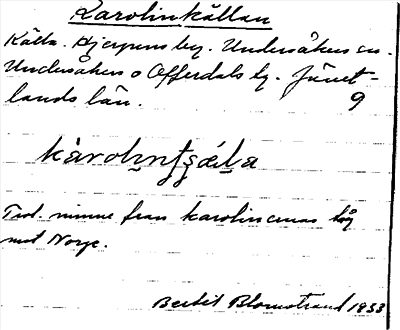 Karolinkällan
Källa. Hjerpens by. Undersåkers sn.
Undersåkers o Offerdals tg. Jämt-
lands län. 9
kàrolınţşä́ļa
Trol. minne från karolinernas tåg
mot Norge.
Bertil Blomstrand 1933